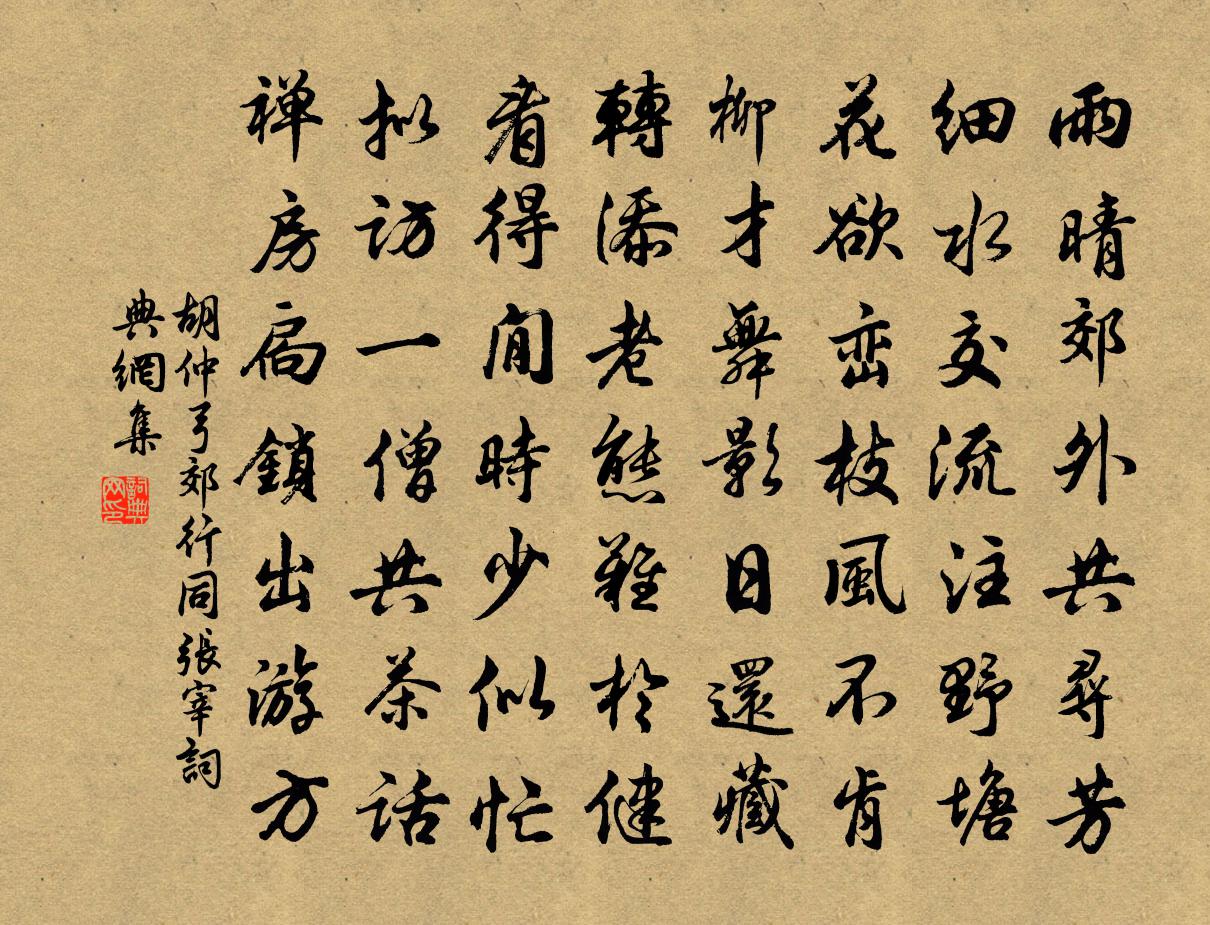 雨晴郊外共尋芳
细水交流注野塘
花欲峦枝風不肯
柳才舞影日還藏
轉添老態難於健
看得閒時少似忙
拟訪一僧共茶話
禅房扃鎖出游方
胡仲弓郊行同張宰詞
典網集
詞典网印